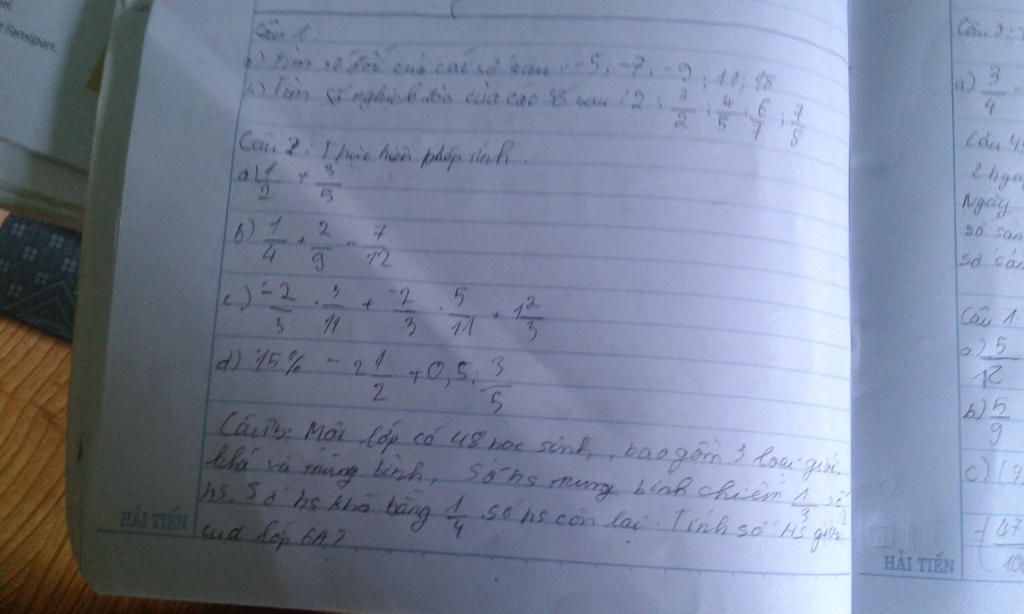 Câu 1:
a) Tìm số đối của các số sau: -5, -7, -9; 11; 18
b) Tìm số nghịch đảo của các số sau: 2; 3/2; 4/5; 6/7; 7/8
Câu 2: Thực hiện phép tính.
a) 1/2 + 3/5
b) 1/4 + 2/9 - 7/12
c) -2/3 . 3/11 + -2/3 . 5/11 + 1 2/3
d) 15% - 2 1/2 + 0,5 : 3/5
Câu 3: Một lớp có 48 học sinh, bao gồm 3 loại giỏi,
khá và trung bình, số hs trung bình chiếm 1/3 số
hs. Số hs khá bằng 1/4 số hs còn lại. Tính số HS giỏi
của lớp 6A?
HẢI TIẾN
Fansipan.
Câu 2:
a) 3/4
Câu 4
2 ngà
Ngày
số sản
số sản
Câu 1
a) 5/12
b) 5/9
c) (9
= 47/10
HẢI TIẾN